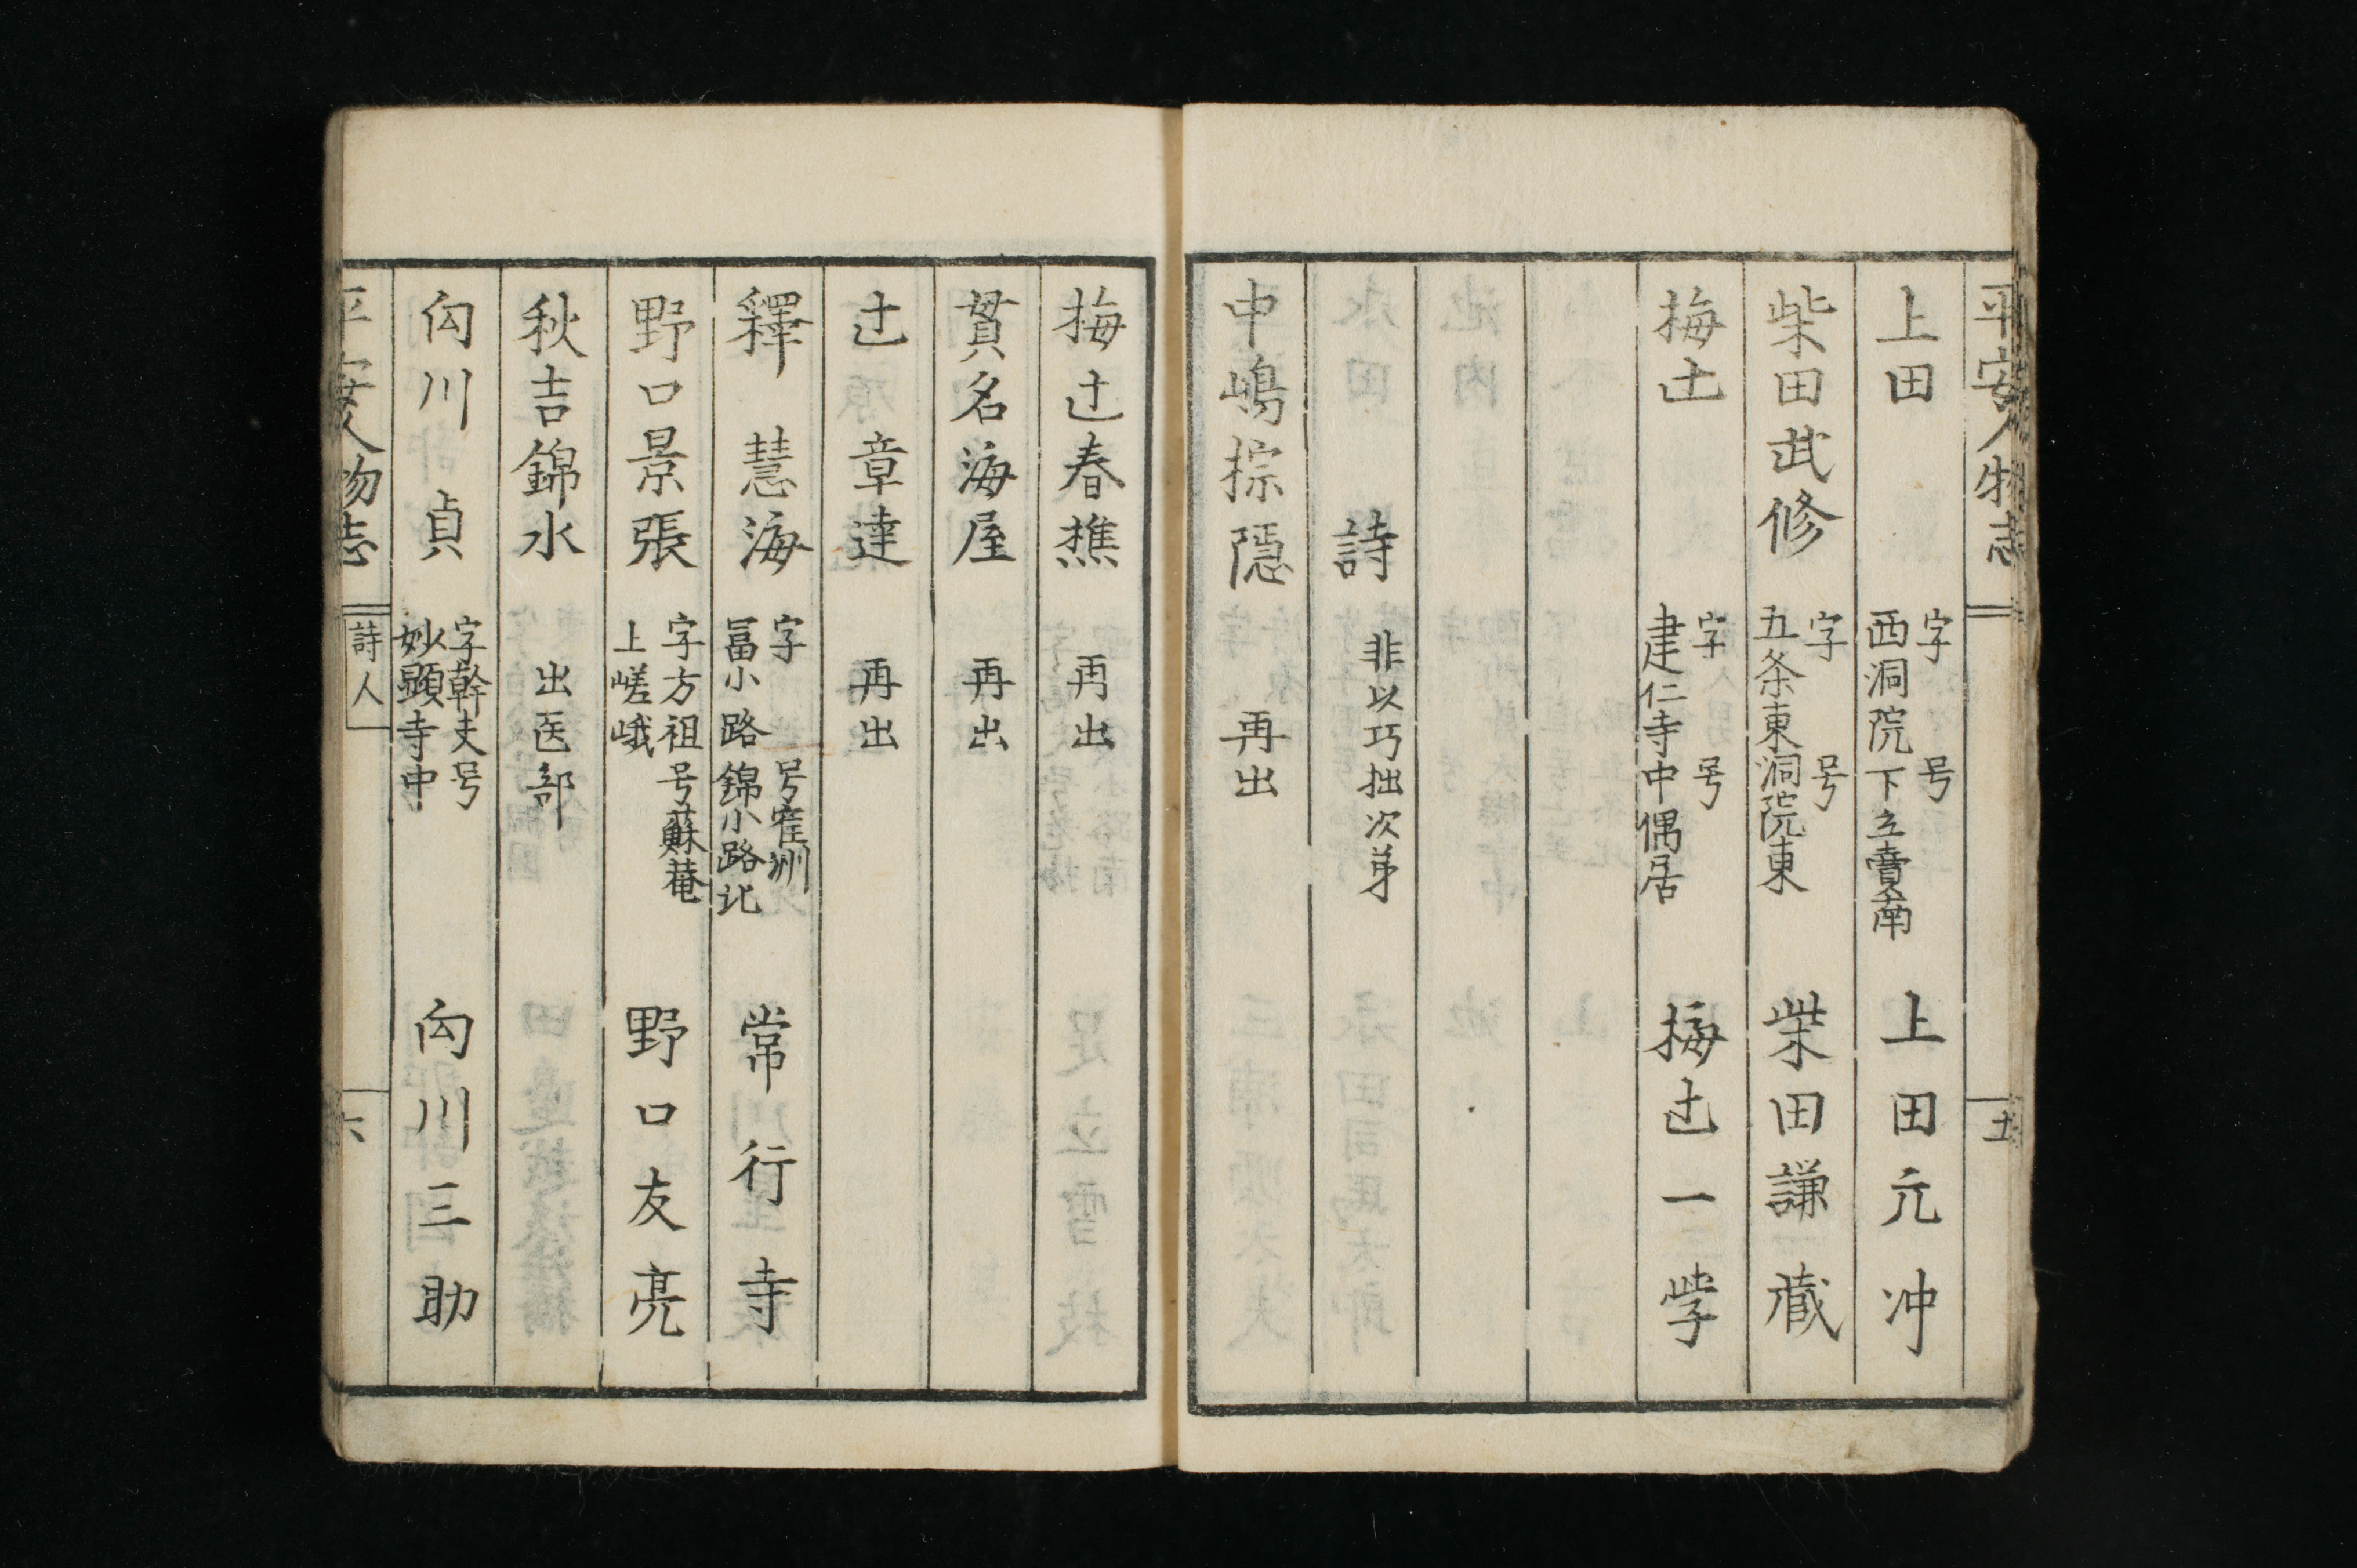 平安人物志
五
上田 字 号 西洞院下立賣南 上田元冲
柴田武修 字 号 五条東洞院東 柴田謙藏
梅辻 字 号 建仁寺中偶居 梅辻一学
詩 非以巧拙次第
中嶋棕隱 再出
梅辻春樵 再出
貫名海屋 再出
辻 章達 再出
釋 慧海 字 号寉洲 冨小路錦小路北 常行寺
野口景張 字方祖 号蘇菴 上嵯峨 野口友亮
秋吉錦水 出医部
向川 貞 字幹夫 号 妙顕寺中 向川三助
平安人物志
詩人
六